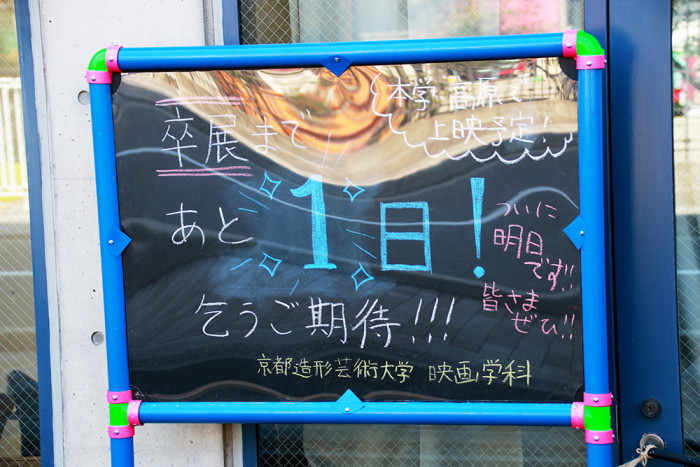 本学・高原で
上映予定!
卒展まで
あと1日!
ついに
明日
です!!
皆さま
ぜひ!!
乞うご期待!!!
京都造形芸術大学 映画学科